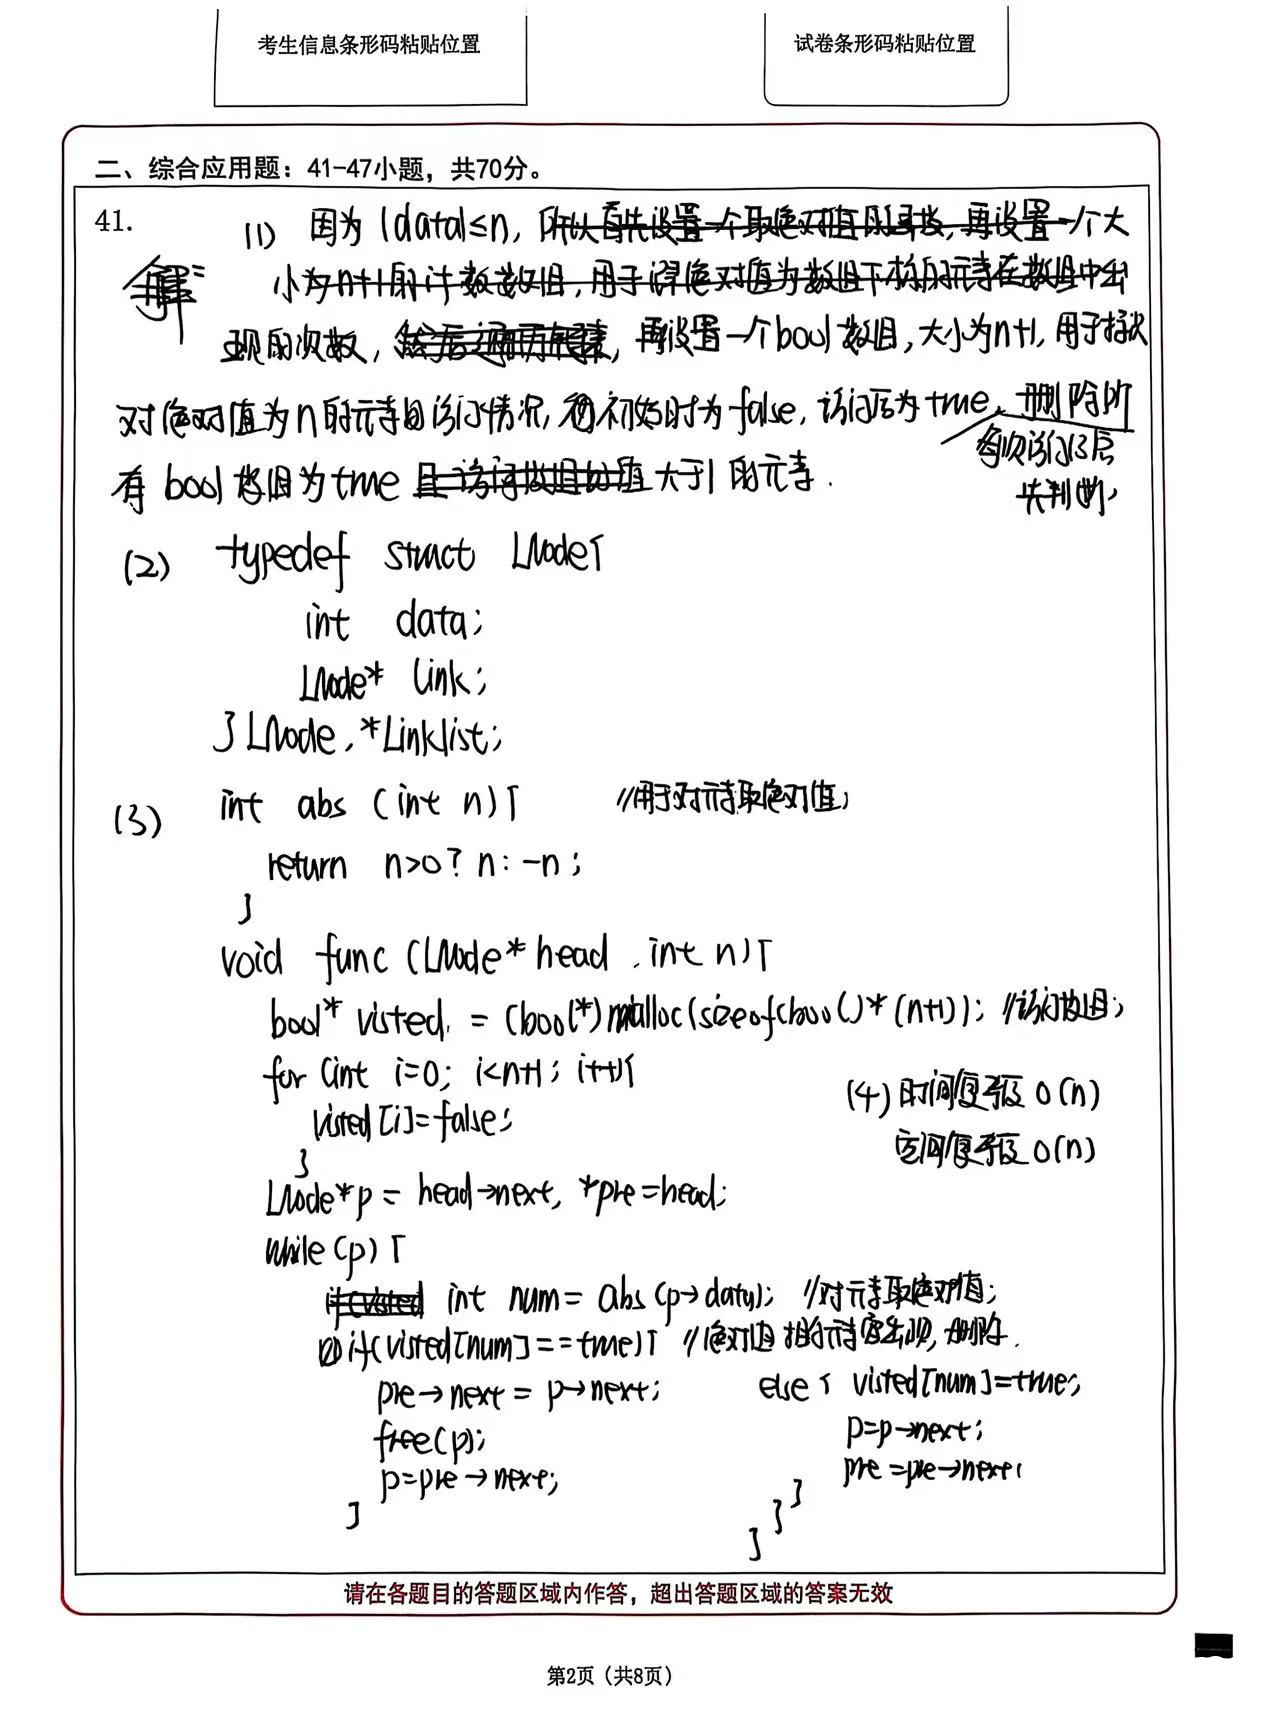 考生信息条形码粘贴位置
试卷条形码粘贴位置
二、综合应用题：41-47小题，共70分。
41.
(1) 因为|data|≤n，所以首先设置一个取绝对值的函数，再设置一个大
解：
小为n+1的计数数组，用于记绝对值为数组下标的元素在数组中出
现的次数，再设置一个bool数组，大小为n+1，用于
对绝对值为n的元素的访问情况，初始时为false，访问后为true，删除所
每次访问后
先判断，
有bool数组为true且访问数组的值大于1的元素.
(2) typedef struct LNode{
int data;
LNode* link;
} LNode, *Linklist;
(3) int abs (int n){ //用于对元素取绝对值;
return n>0? n: -n;
}
void func (LNode* head, int n){
bool* visted = (bool*)malloc(sizeof(bool)*(n+1)); //访问数组;
for (int i=0; i<n+1; i++){
visted[i]=false;
}
(4) 时间复杂度 O(n)
空间复杂度 O(n)
LNode*p = head→next, *pre=head;
while(p){
if(visted int num= abs(p→data); //对元素取绝对值;
if(visted[num]==true){ //绝对值相同元素已出现，删除.
pre→next = p→next;
free(p);
p=pre→next;
}
else{ visted[num]=true;
p=p→next;
pre=pre→next;
}
}
}
请在各题目的答题区域内作答，超出答题区域的答案无效
第2页（共8页）